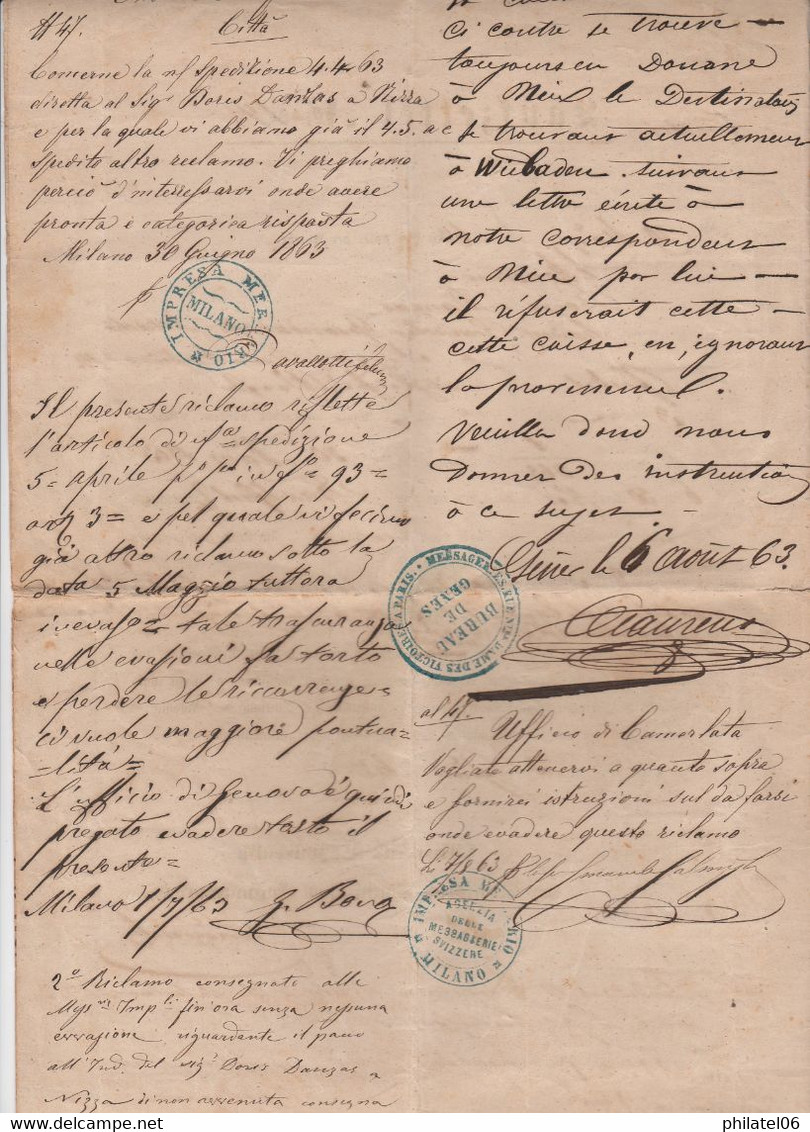 # 47. Città
Concerne la n/ Spedizione 4.4.63
diretta al Sig Boris Danzas a Nizza
e per la quale vi abbiamo già il 4.5. a c
spedito altro reclamo. Vi preghiamo
perciò d'interessarvi onde avere
pronta e categorica risposta
Milano 30 Giugno 1863
IMPRESA MERZARIO
MILANO
Il presente riclamo riflette
l'articolo di spedizione
5 aprile 93=
3= e pel quale vi
già altro riclamo sotto la
data 5 Maggio tuttora
inevaso= tale trascuranza
nelle evasioni fa torto
e perdere le
ci vuole maggiore pontua=
=lità=
L'ufficio di Genova è quindi
pregato evadere tosto il
presente=
Milano 1/7/63 G. Bono
2º Riclamo consegnato alle
Imp fin'ora senza nessuna
evasione riguardante il pacco
all'Ind. del Sig Boris Danzas a
Nizza di non avvenuta consegna
ci contre se trouve
toujours en Douane
à Nice le Destinataire
se trouvant actuellement
à Wisbaden suivant
une lettre écrite à
notre correspondant
à Nice par lui
il réfuserait cette
cette caisse, en, ignorant
la provenance.
Veuillez donc nous
Donner des instructions
à ce sujet
Gênes le 6 août 63.
MESSAGERIES, RUE N.D. DAME DES VICTOIRES A PARIS.
BUREAU
DE
GENES
al 47. Ufficio di Camerlata
Vogliate attenervi a quanto sopra
e fornirci istruzioni sul da farsi
onde evadere questo riclamo
Li 7/8 63
IMPRESA MERZARIO
AGENZIA
DELLE
MESSAGGERIE
SVIZZERE
MILANO
philatel06